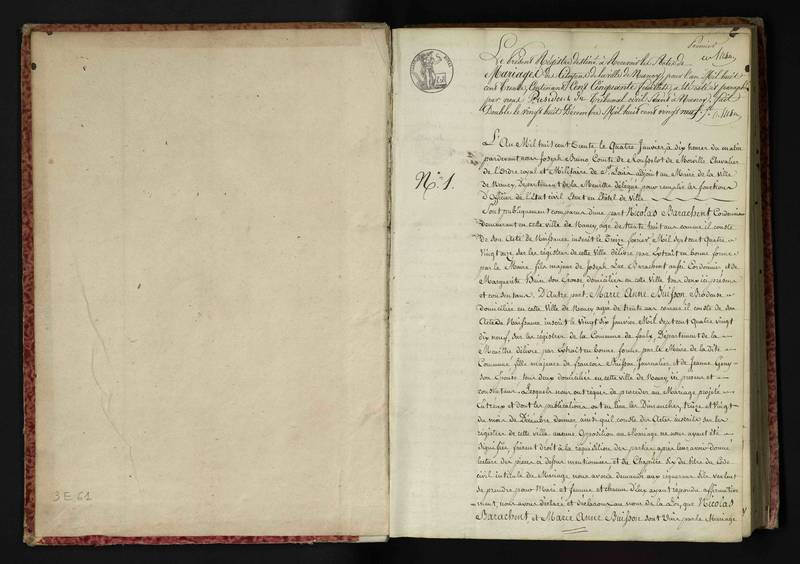 Premier
Le présent Registre destiné à Recevoir les Actes de
Mariages des Citoyens de la ville de Nancy, pour l'an Mil huit
cent Trente, Contenant Cent Cinquante feuillets, a été coté et paraphé
par nous Président du Tribunal civil séant à Nancy, fait
Double le vingt huit Décembre Mil huit cent vingt neuf.
N.° 1.
L'An Mil huit cent Trente le Quatre Janvier, à dix heures du matin
pardevant nous Joseph Bruno Comte de Morville Chevalier
de l'Ordre royal et Militaire de St. Louis, adjoint au Maire de la Ville
de Nancy, Département de la Meurthe délégué pour remplir les fonctions
d'Officier de l'Etat civil Sont en l'hôtel de Ville
Sont publiquement comparus d'une part Nicolas Barachent Cordonnier
demeurant en cette ville de Nancy, agé de trente huit ans comme il conste
de son Acte de Naissance inscrit le Treize février Mil sept cent quatre
vingt onze, sur les régistres de cette Ville délivré par Extrait en bonne forme
par le Maire, fils majeur de Joseph Luc Barachent aussi Cordonnier, et de
Marguerite son Epouse, domiciliés en cette Ville tous deux ici présens
et consentans. D'Autre part, Marie Anne Buisson Brodeuse
domiciliée en cette Ville de Nancy agée de trente ans comme il conste de son
Acte de Naissance inscrit le Vingt dix Janvier Mil sept cent quatre vingt
dix neuf, sur les régistres de la Commune de Département de la
Meurthe délivré par Extrait en bonne forme par le Maire de la dite
Commune, fille majeure de françois Buisson, Journalier, et de Jeanne
son Epouse, tous deux domiciliés en cette ville de Nancy ici présens et
consentans. Lesquels nous ont requis de procéder au Mariage projeté
entr'eux et dont les publications ont eu lieu les Dimanches, treize et Vingt
du mois de Décembre dernier, ainsi qu'il conste des Actes inscrits sur les
régistres de cette ville aucune Opposition au Mariage ne nous ayant été
signifiée, faisant droit à la réquisition des parties, après leur avoir donné
lecture des pièces ci dessus mentionnées et du Chapitre six du titre du Code
civil intitulé du Mariage nous avons demandé aux réquérans s'ils veulent
se prendre pour Mari et femme et chacun d'eux ayant répondu affirmative
ment, nous avons déclaré et déclarons au nom de la Loi, que Nicolas
Barachent et Marie Anne Buisson sont Unis par le Mariage
3 E 61